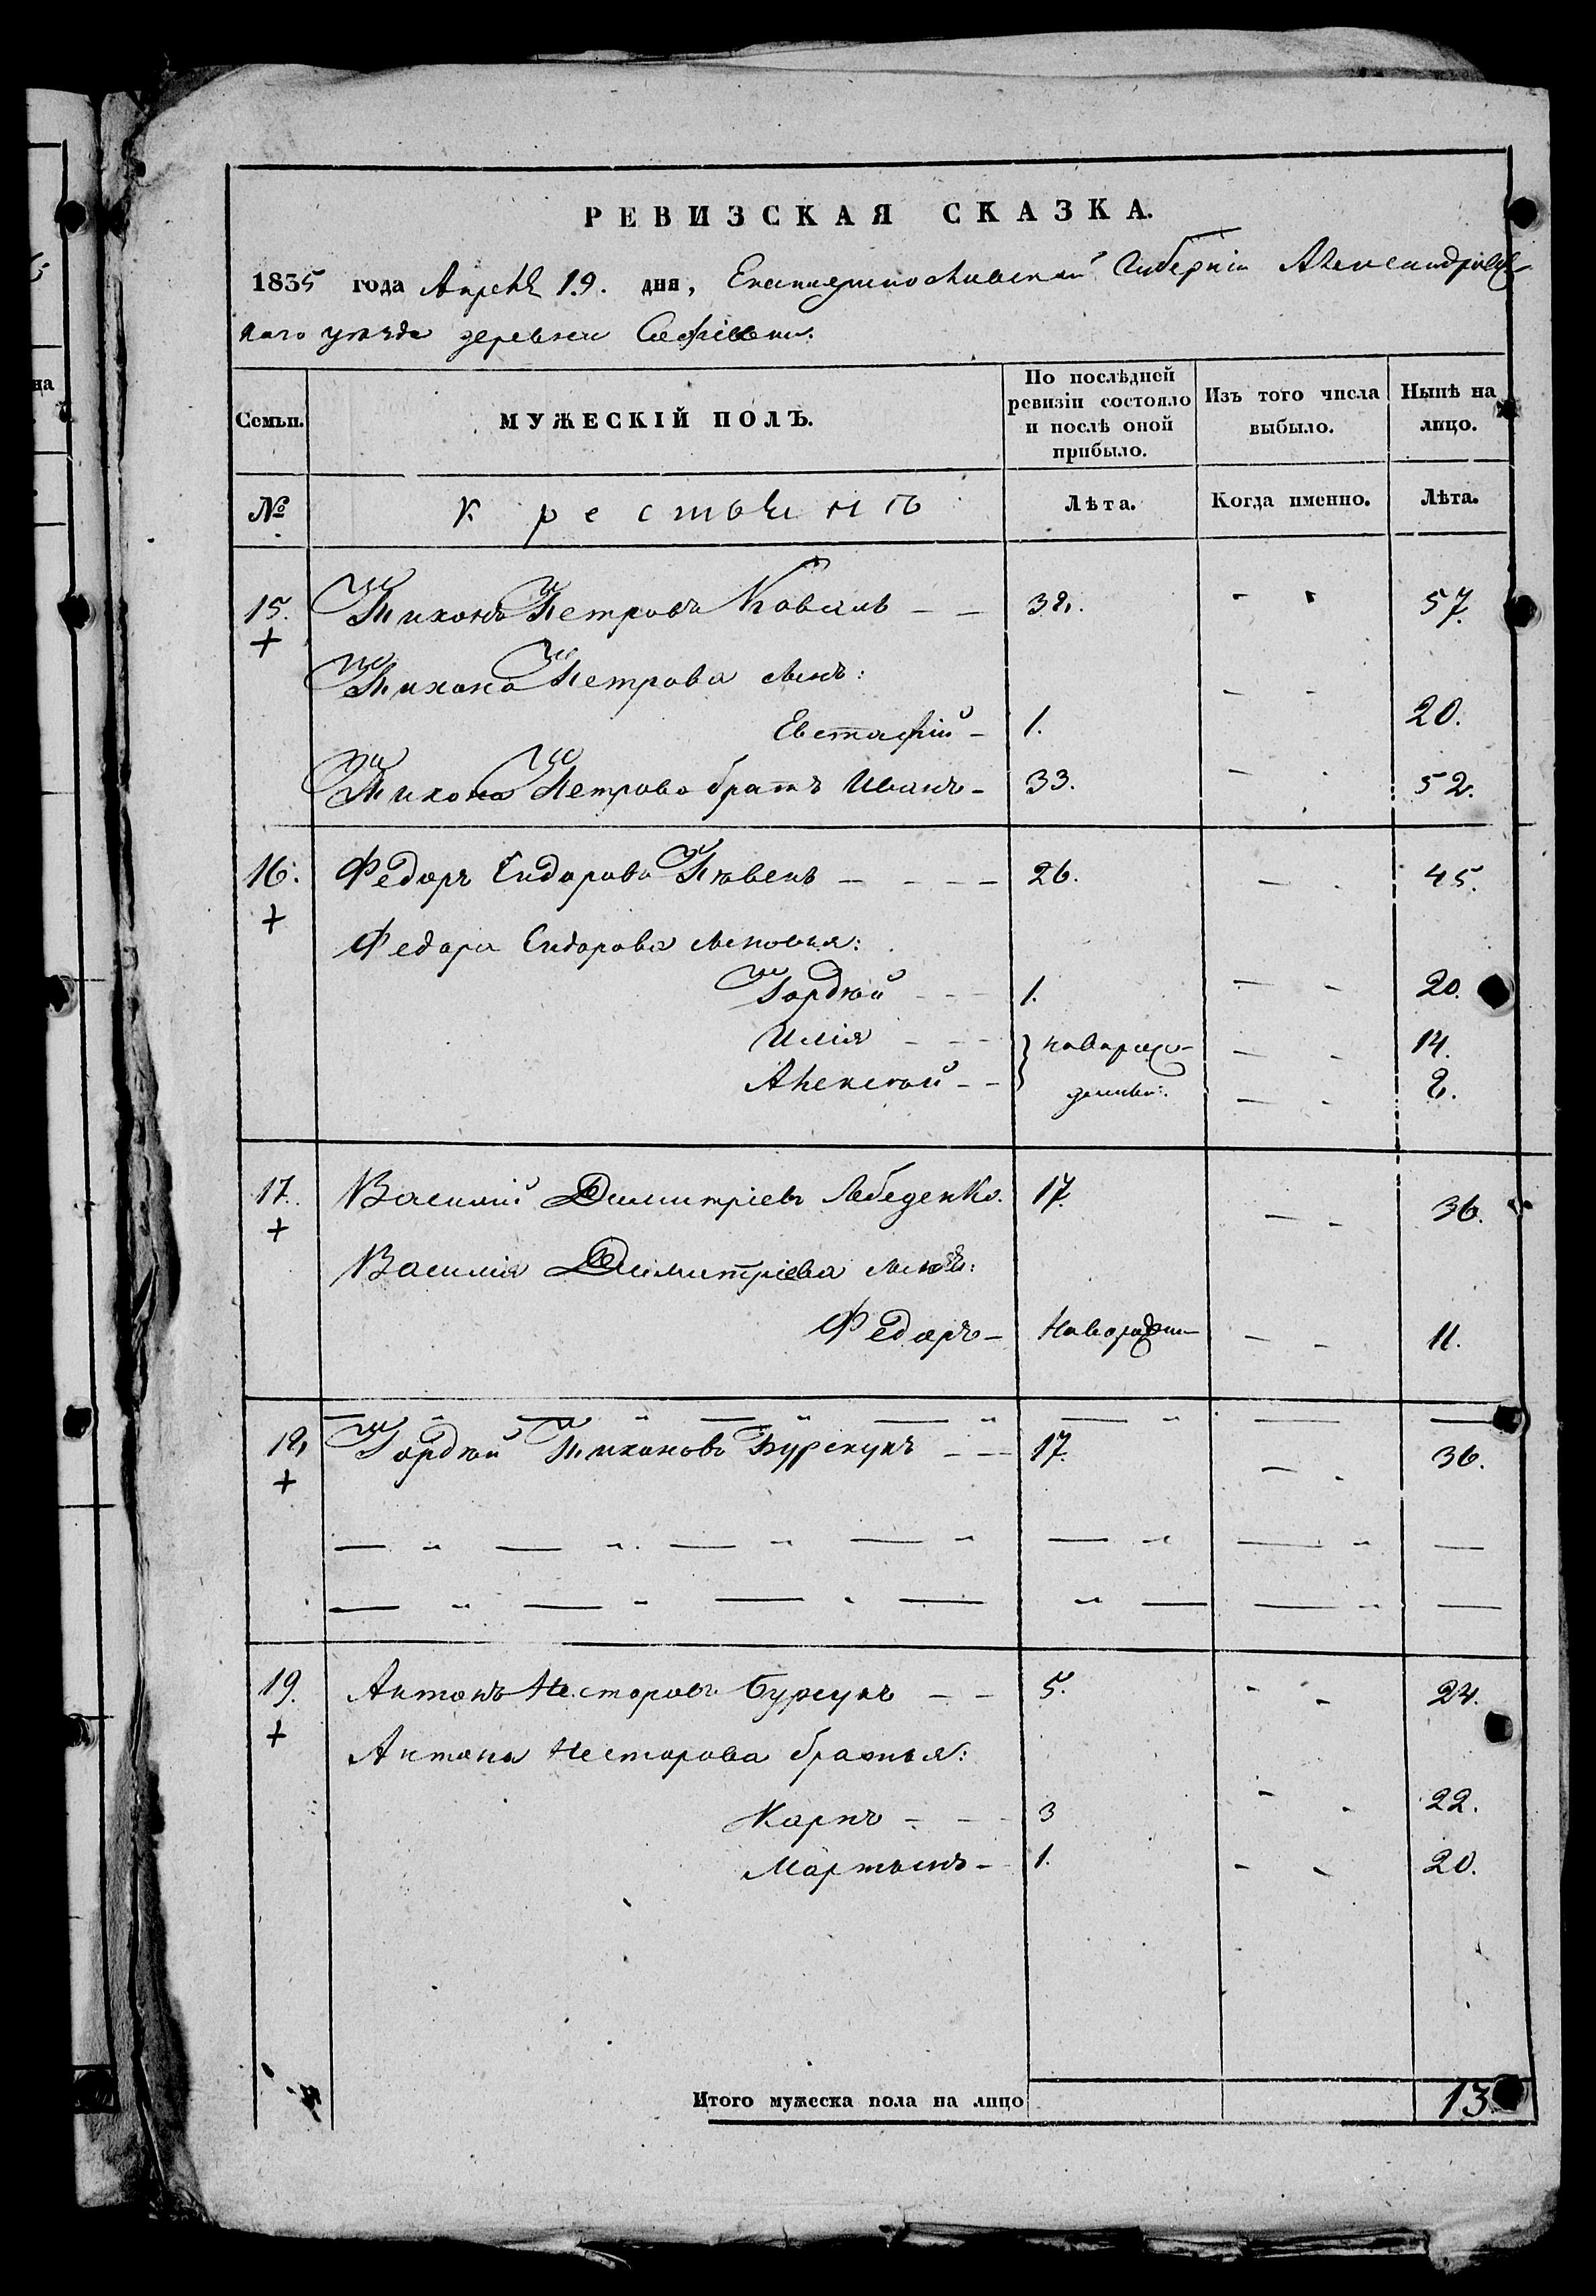 РЕВИЗСКАЯ СКАЗКА.
1835 года Апреля 19. дня, Екатеринославской Губерніи Александровс-
каго уѣзда деревни Софіевки.
Семьи. МУЖЕСКІЙ ПОЛЪ. По послѣдней ревизіи состояло и послѣ оной прибыло. Изъ того числа выбыло. Нынѣ на лицо.
№ Крестьянъ Лѣта. Когда именно. Лѣта.
15. Тихонъ Петровъ Коваль — — 38. - - 57.
Тихона Петрова сынъ:
Евстафій — 1. - - 20.
Тихона Петрова братъ Иванъ — 33. - - 52.
16. Федоръ Сидоровъ — — — — 26. — - 45.
Федора Сидорова сыновья:
Гордѣй — — 1. — - 20.
Илія — — — } новорож- — - 14.
Алексѣй — — } денные: — - 2.
17. Василій Димитріевъ Лебеденко. 17. — - 36.
Василія Димитріева сынъ:
Федоръ — Новорожден — - 11.
18. Гордѣй Тихоновъ Бурсукъ — — 17. — - 36.
19. Антонъ Несторовъ Бурсукъ — — 5. - - 24.
Антона Несторова братья:
Карпъ — — 3 - - 22.
Мартынъ — 1. - - 20.
Итого мужеска пола на лицо 13.